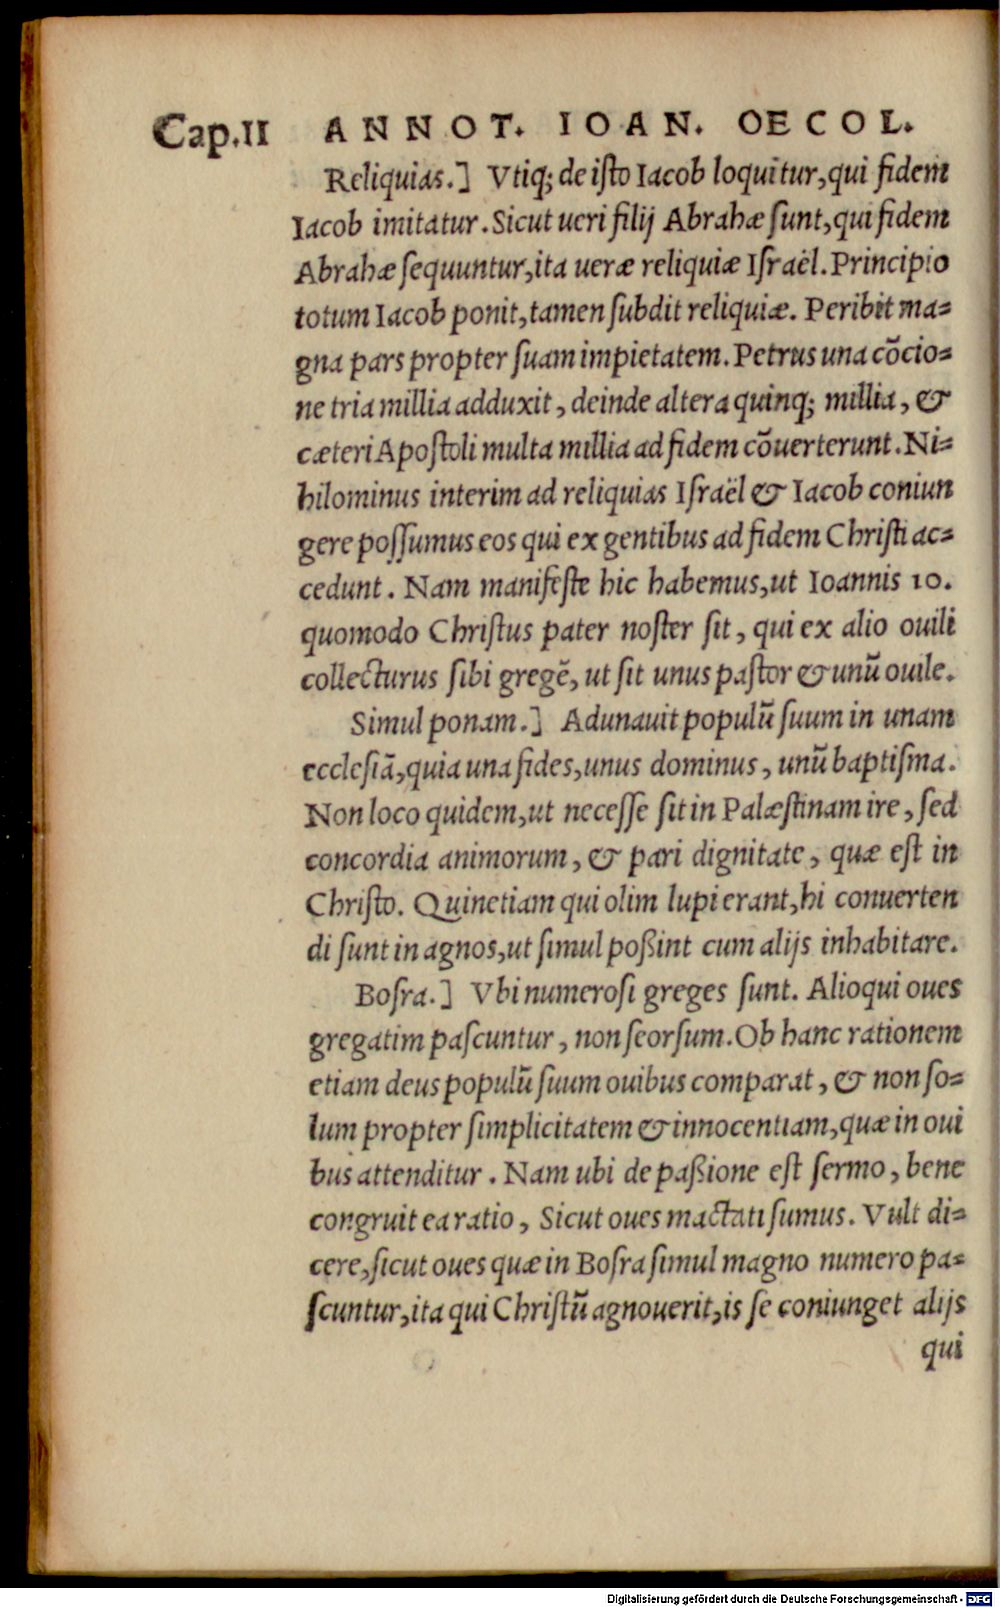 Cap.II ANNOT. IOAN. OECOL.
Reliquias.] Vtiq; de iſto Iacob loquitur, qui fidem
Iacob imitatur. Sicut ueri filij Abrahæ ſunt, qui fidem
Abrahæ ſequuntur, ita ueræ reliquiæ Iſraël. Principio
totum Iacob ponit, tamen ſubdit reliquiæ. Peribit ma=
gna pars propter ſuam impietatem. Petrus una cõcio=
ne tria millia adduxit, deinde altera quinq; millia, &
cæteri Apoſtoli multa millia ad fidem cõuerterunt. Ni=
hilominus interim ad reliquias Iſraël & Iacob coniun
gere poſſumus eos qui ex gentibus ad fidem Chriſti ac=
cedunt. Nam manifeſte hic habemus, ut Ioannis 10.
quomodo Chriſtus pater noſter ſit, qui ex alio ouili
collecturus ſibi gregẽ, ut ſit unus paſtor & unũ ouile.
Simul ponam.] Adunauit populũ ſuum in unam
eccleſiã, quia una fides, unus dominus, unũ baptiſma.
Non loco quidem, ut neceſſe ſit in Palæſtinam ire, ſed
concordia animorum, & pari dignitate, quæ eſt in
Chriſto. Quinetiam qui olim lupi erant, hi conuerten
di ſunt in agnos, ut ſimul poßint cum alijs inhabitare.
Boſra.] Vbi numeroſi greges ſunt. Alioqui oues
gregatim paſcuntur, non ſeorſum. Ob hanc rationem
etiam deus populũ ſuum ouibus comparat, & non ſo=
lum propter ſimplicitatem & innocentiam, quæ in oui
bus attenditur. Nam ubi de paßione eſt ſermo, bene
congruit ea ratio, Sicut oues mactati ſumus. Vult di=
cere, ſicut oues quæ in Boſra ſimul magno numero pa=
ſcuntur, ita qui Chriſtũ agnouerit, is ſe coniunget alijs
qui
Digitalisierung gefördert durch die Deutsche Forschungsgemeinschaft - DFG